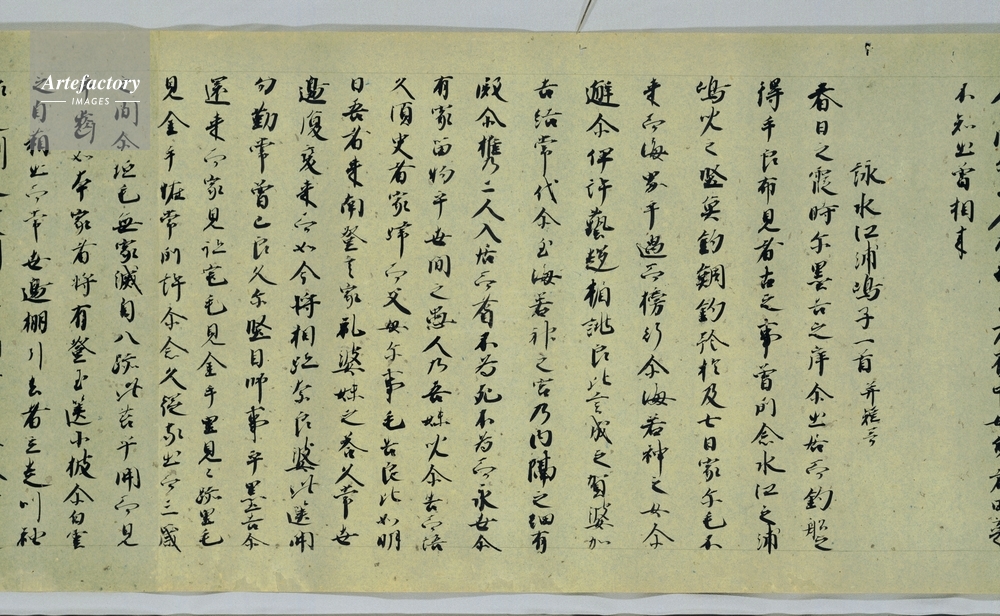 不知出曽相来
詠水江浦嶋子一首并短歌
春日之霞時尓墨吉之岸尓出居而釣船之
得乎良布見者古之事曽所念水江之浦
嶋兒之堅魚釣鯛釣矜及七日家尓毛不
来而海界乎過而榜行尓海若神之女尓
邂尓伊許藝趍相誂良比言成之賀婆加
吉結常代尓至海若神之宮乃内隔之細有
殿尓携二人入居而耆不為死不為而永世尓
有家留物乎世間之愚人乃吾妹兒尓告而語
久須臾者家歸而父母尓事毛告良比如明
日吾者来南登言家礼婆妹之答久常世
邊復變来而如今将相跡奈良婆此篋開
勿勤常曽己良久尓堅目師事乎墨吉尓
還来而家見跡宅毛見金手里見跡里毛
見金手恠常所許尓念久従家出而三歳
之間尓垣毛無家滅目八跡此筥乎開而見
手齒如本家者将有登玉篋小披尓白雲
之自箱出而常世邊棚引去者立走叫袖
Artefactory
IMAGES